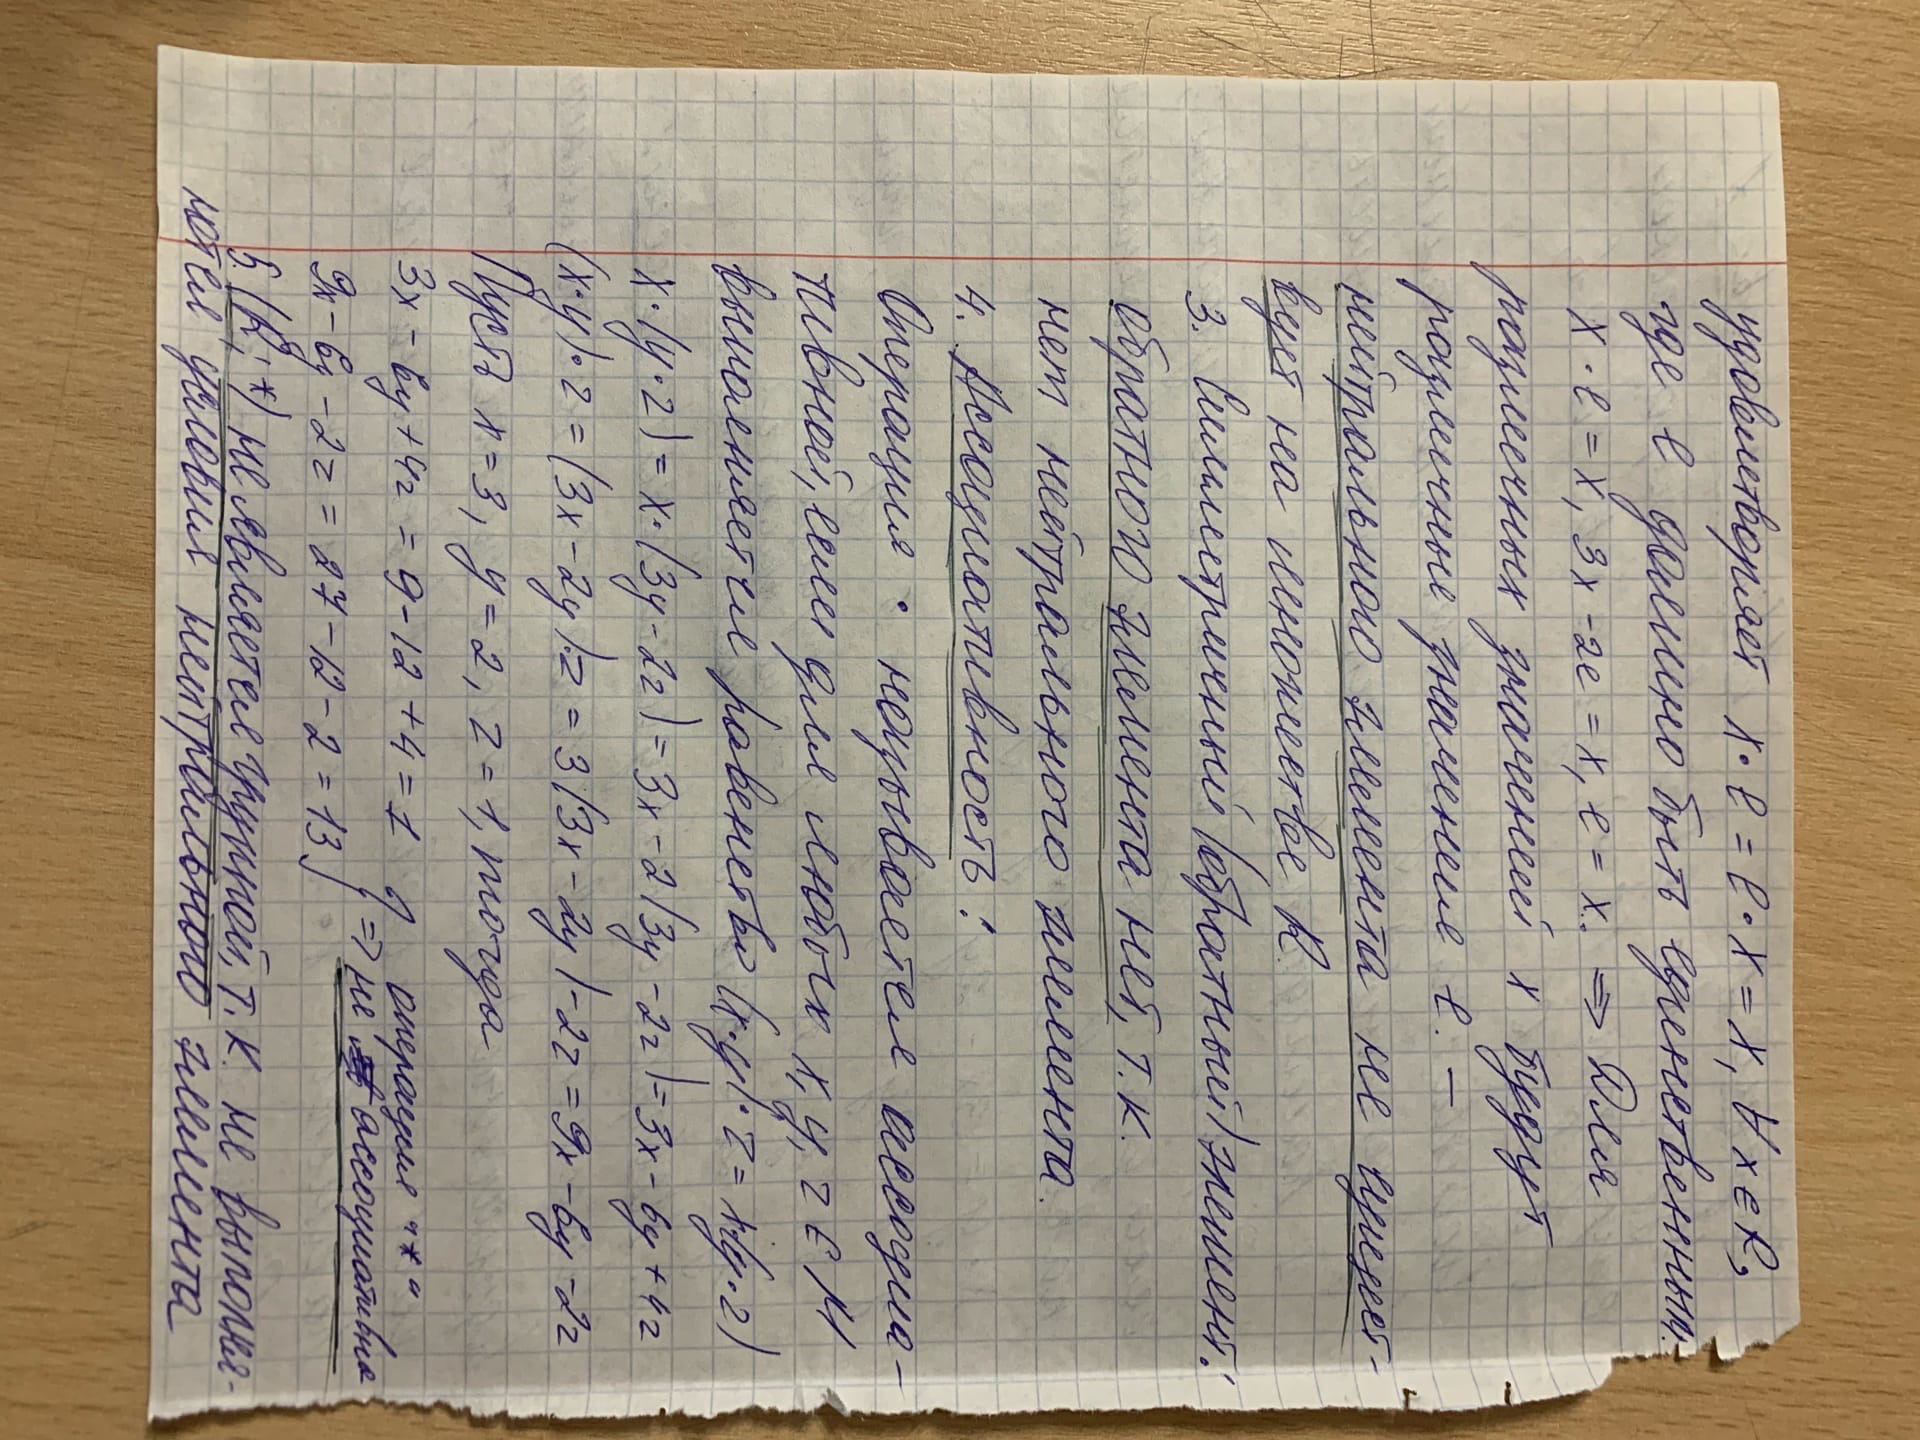 удовлетворяет x • e = e • x = x, ∀ x ∈ R,
где e должно быть единственным.
x • e = x, 3x - 2e = x, e = x. ⇒ Для
различных значений x будут
различные значение e. —
нейтрального элемента не сущест-
вует на множестве R.
3. Симметричный (обратный) элемент:
обратного элемента нет, т. к.
нет нейтрального элемента.
4. Ассоциативность:
Операция • называется ассоциа-
тивной, если для любых x, y, z ∈ M
выполняется равенство (x•y)•z = x(y•z)
x•(y•z) = x•(3y-2z) = 3x-2(3y-2z) = 3x-6y+4z
(x•y)•z = (3x-2y)•z = 3(3x-2y)-2z = 9x-6y-2z
Пусть x=3, y=2, z=1, тогда
3x - 6y + 4z = 9 - 12 + 4 = 1
9x - 6y - 2z = 27 - 12 - 2 = 13 } ⇒ операция "*" не ассоциативна
5. (R; *) не является группой, т. к. не выполня-
ются условия нейтрального элемента